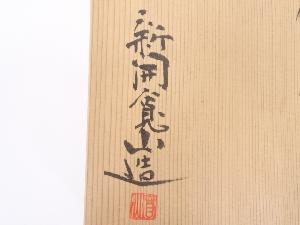 新開寛山造